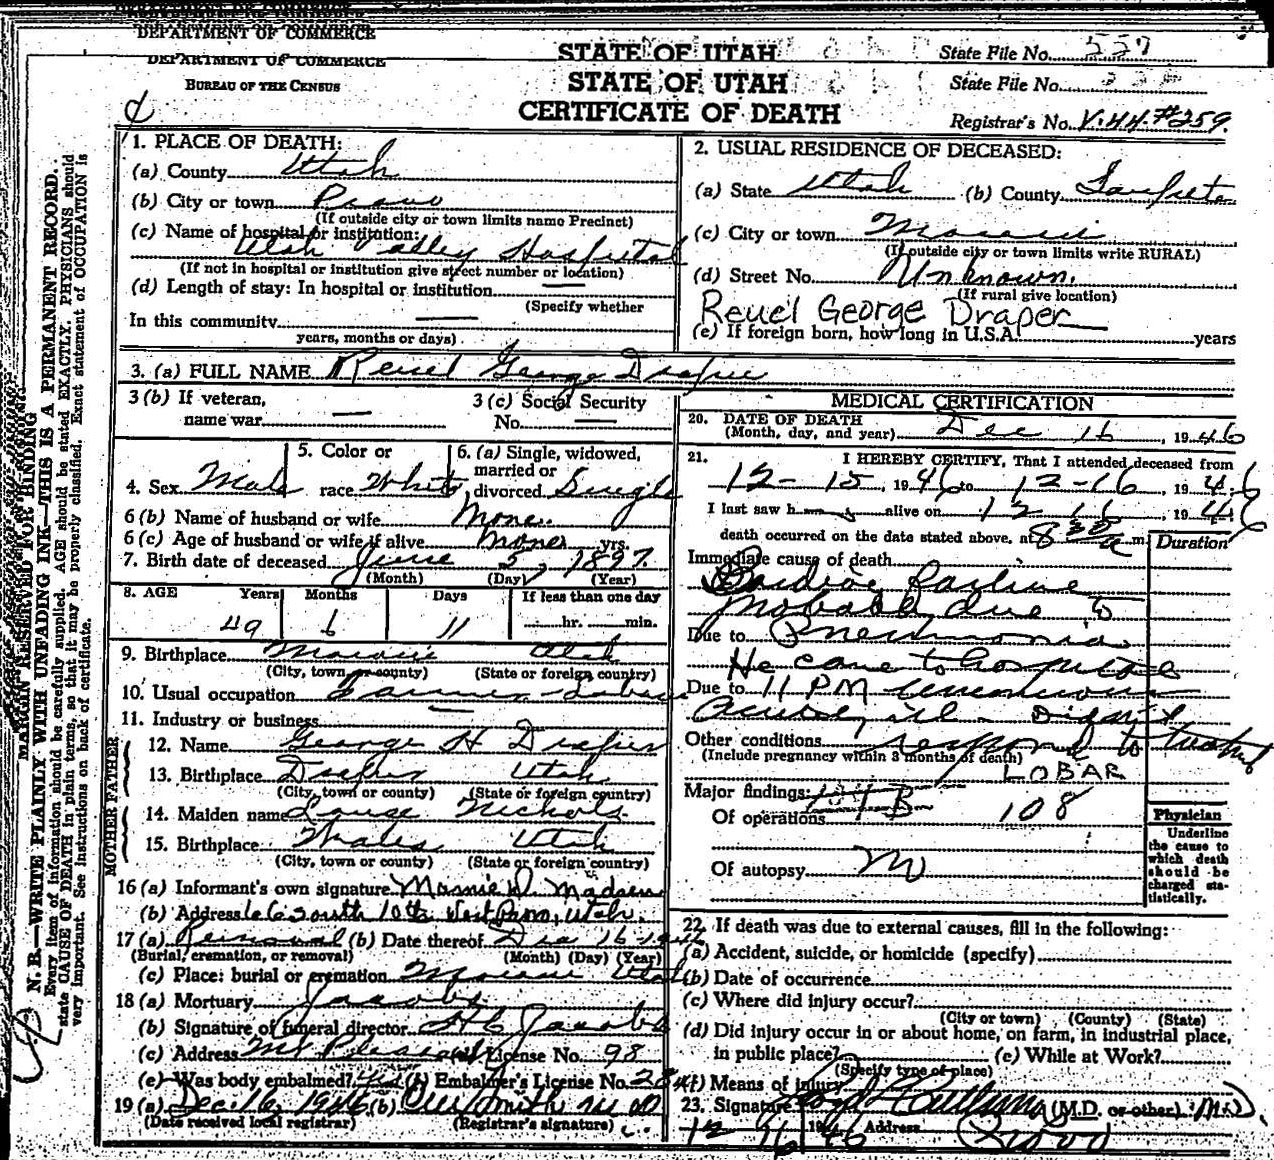 DEPARTMENT OF COMMERCE
DEPARTMENT OF COMMERCE
BUREAU OF THE CENSUS
STATE OF UTAH
STATE OF UTAH
CERTIFICATE OF DEATH
State File No. 557
State File No.
Registrar's No. V.44.#259.
MARGIN RESERVED FOR BINDING
N. B.—WRITE PLAINLY WITH UNFADING INK—THIS IS A PERMANENT RECORD.
Every item of information should be carefully supplied. AGE should be stated EXACTLY. PHYSICIANS should
state CAUSE OF DEATH in plain terms, so that it may be properly classified. Exact statement of OCCUPATION is
very important. See instructions on back of certificate.
1. PLACE OF DEATH:
(a) County Utah
(b) City or town Provo
(If outside city or town limits name Precinct)
(c) Name of hospital or institution:
Utah Valley Hospital
(If not in hospital or institution give street number or location)
(d) Length of stay: In hospital or institution —
(Specify whether
In this community —
years, months or days)
2. USUAL RESIDENCE OF DECEASED:
(a) State Utah (b) County Sanpete
(c) City or town Moroni
(If outside city or town limits write RURAL)
(d) Street No. Unknown.
(If rural give location)
Reuel George Draper
(e) If foreign born, how long in U.S.A. — years
3. (a) FULL NAME Reuel George Draper
3 (b) If veteran,
name war —
3 (c) Social Security
No. —
4. Sex Male
5. Color or
race White
6. (a) Single, widowed,
married or
divorced Single
6 (b) Name of husband or wife None
6 (c) Age of husband or wife if alive None yrs.
7. Birth date of deceased June 5, 1897.
(Month) (Day) (Year)
8. AGE Years Months Days If less than one day
49 6 11 hr. min.
9. Birthplace Moroni Utah
(City, town or county) (State or foreign country)
10. Usual occupation Farmer - Laborer
11. Industry or business —
FATHER
12. Name George H Draper
13. Birthplace Draper Utah
(City, town or county) (State or foreign country)
MOTHER
14. Maiden name Nichols
15. Birthplace Wales Utah
(City, town or county) (State or foreign country)
16 (a) Informant's own signature Mamie D. Madsen
(b) Address 66 South 10th West Provo, Utah.
17 (a) Removal (b) Date thereof Dec 16-1946
(Burial, cremation, or removal) (Month) (Day) (Year)
(c) Place: burial or cremation Moroni Utah
18 (a) Mortuary Jacobs
(b) Signature of funeral director H C Jacobs
(c) Address Mt Pleasant License No. 98
(e) Was body embalmed? yes Embalmer's License No.
19 (a) Dec. 16, 1946 (b) Smith
(Date received local registrar) (Registrar's signature)
MEDICAL CERTIFICATION
20. DATE OF DEATH
(Month, day, and year) Dec 16, 1946
21. I HEREBY CERTIFY, That I attended deceased from
12-15, 1946 to 12-16, 1946
I last saw h alive on 12 16, 1946
death occurred on the date stated above, at 8 a m.
Duration
Immediate cause of death
Cardiac failure
Probably due to
Due to Pneumonia
He came to hospital
Due to 11 PM unconscious
Acutely ill - Didn't
Other conditions respond to treatment
(Include pregnancy within 3 months of death)
LOBAR
Major findings:
Of operations 108
Of autopsy
Physician
Underline
the cause to
which death
should be
charged sta-
tistically.
22. If death was due to external causes, fill in the following:
(a) Accident, suicide, or homicide (specify)
(b) Date of occurrence
(c) Where did injury occur?
(City or town) (County) (State)
(d) Did injury occur in or about home, on farm, in industrial place,
in public place? (e) While at Work?
(Specify type of place)
(f) Means of injury
23. Signature (M.D. or other) M.D.
12 16 1946 Address Provo